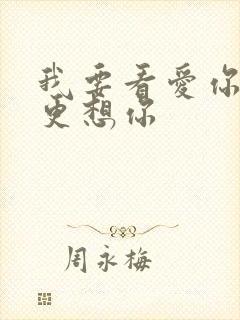 我要看愛你
更想你
周永梅